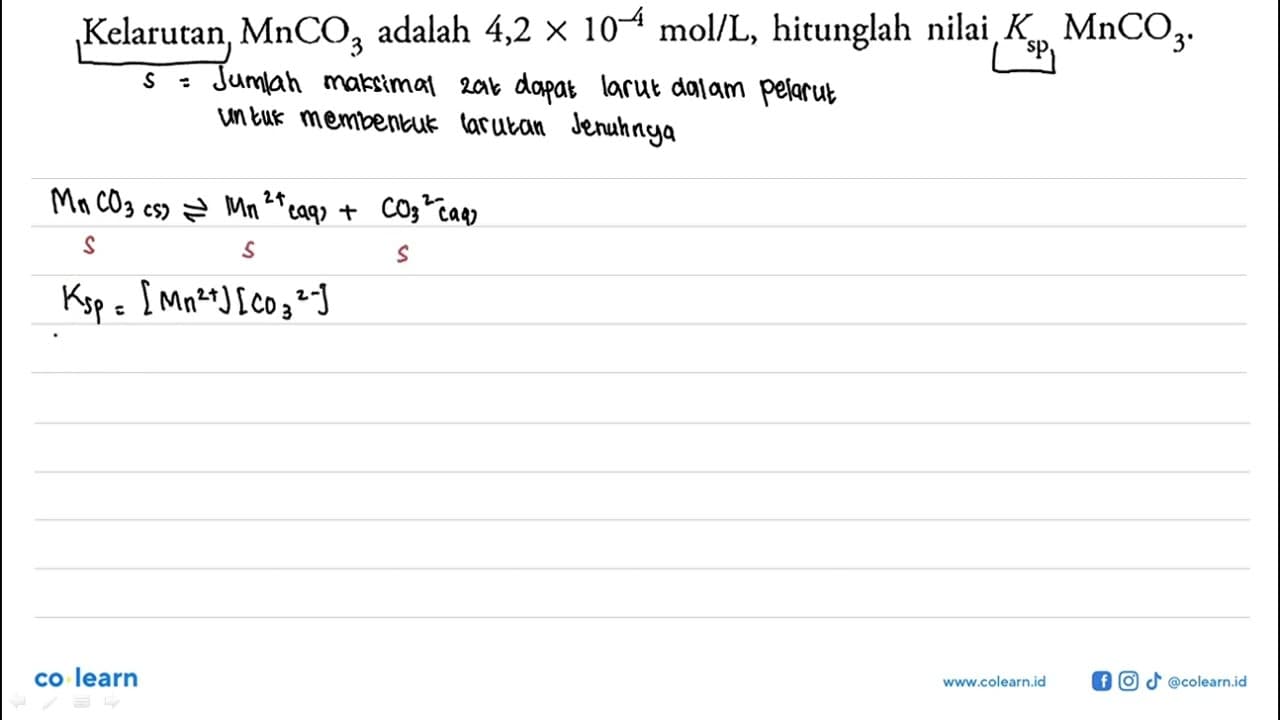 Kelarutan MnCO₃ adalah 4,2 × 10⁻⁴ mol/L, hitunglah nilai Kₛₚ MnCO₃.
s = Jumlah maksimal zat dapat larut dalam pelarut
untuk membentuk larutan Jenuhnya
MnCO₃ (s) ⇌ Mn²⁺ (aq) + CO₃²⁻ (aq)
s s s
Ksp = [Mn²⁺][CO₃²⁻]
co learn
www.colearn.id @colearn.id